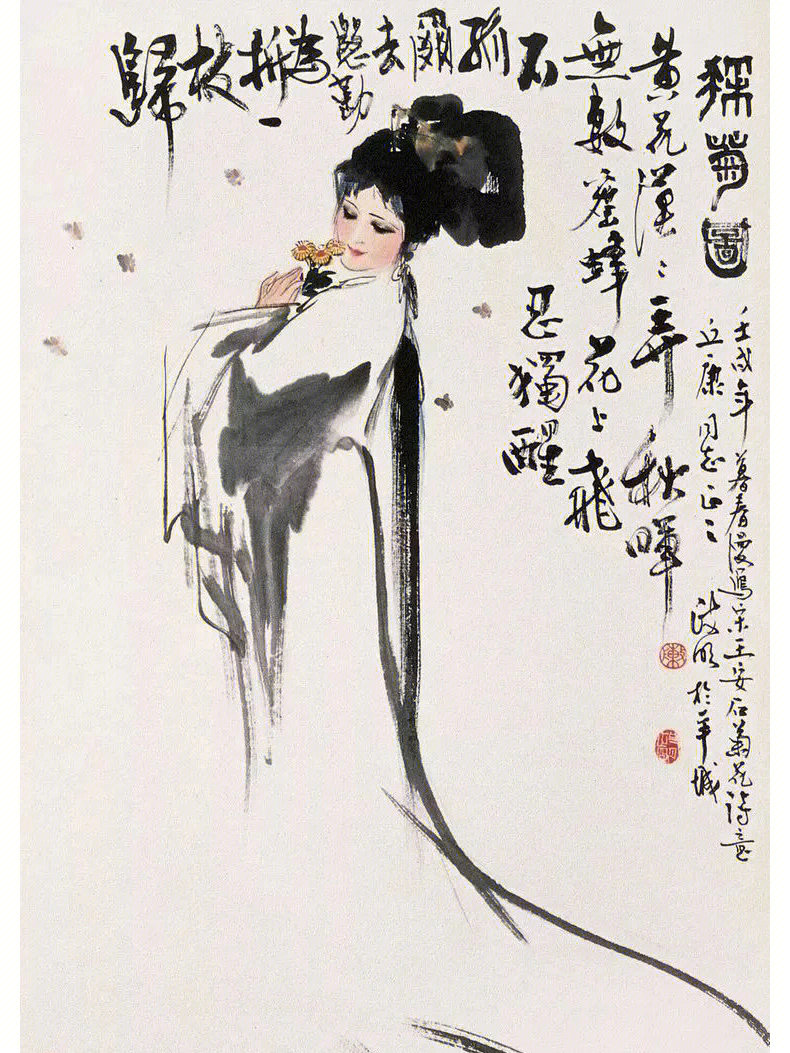 採菊圖
黃花漠〻弄秋暉
無數蜜蜂花上飛
不忍獨醒
孤
爾
去
慇勤
為
折一
枝
歸
壬戌年暮春漫寫宋王安石菊花詩意
丘康同志正之 政明於羊城
陳